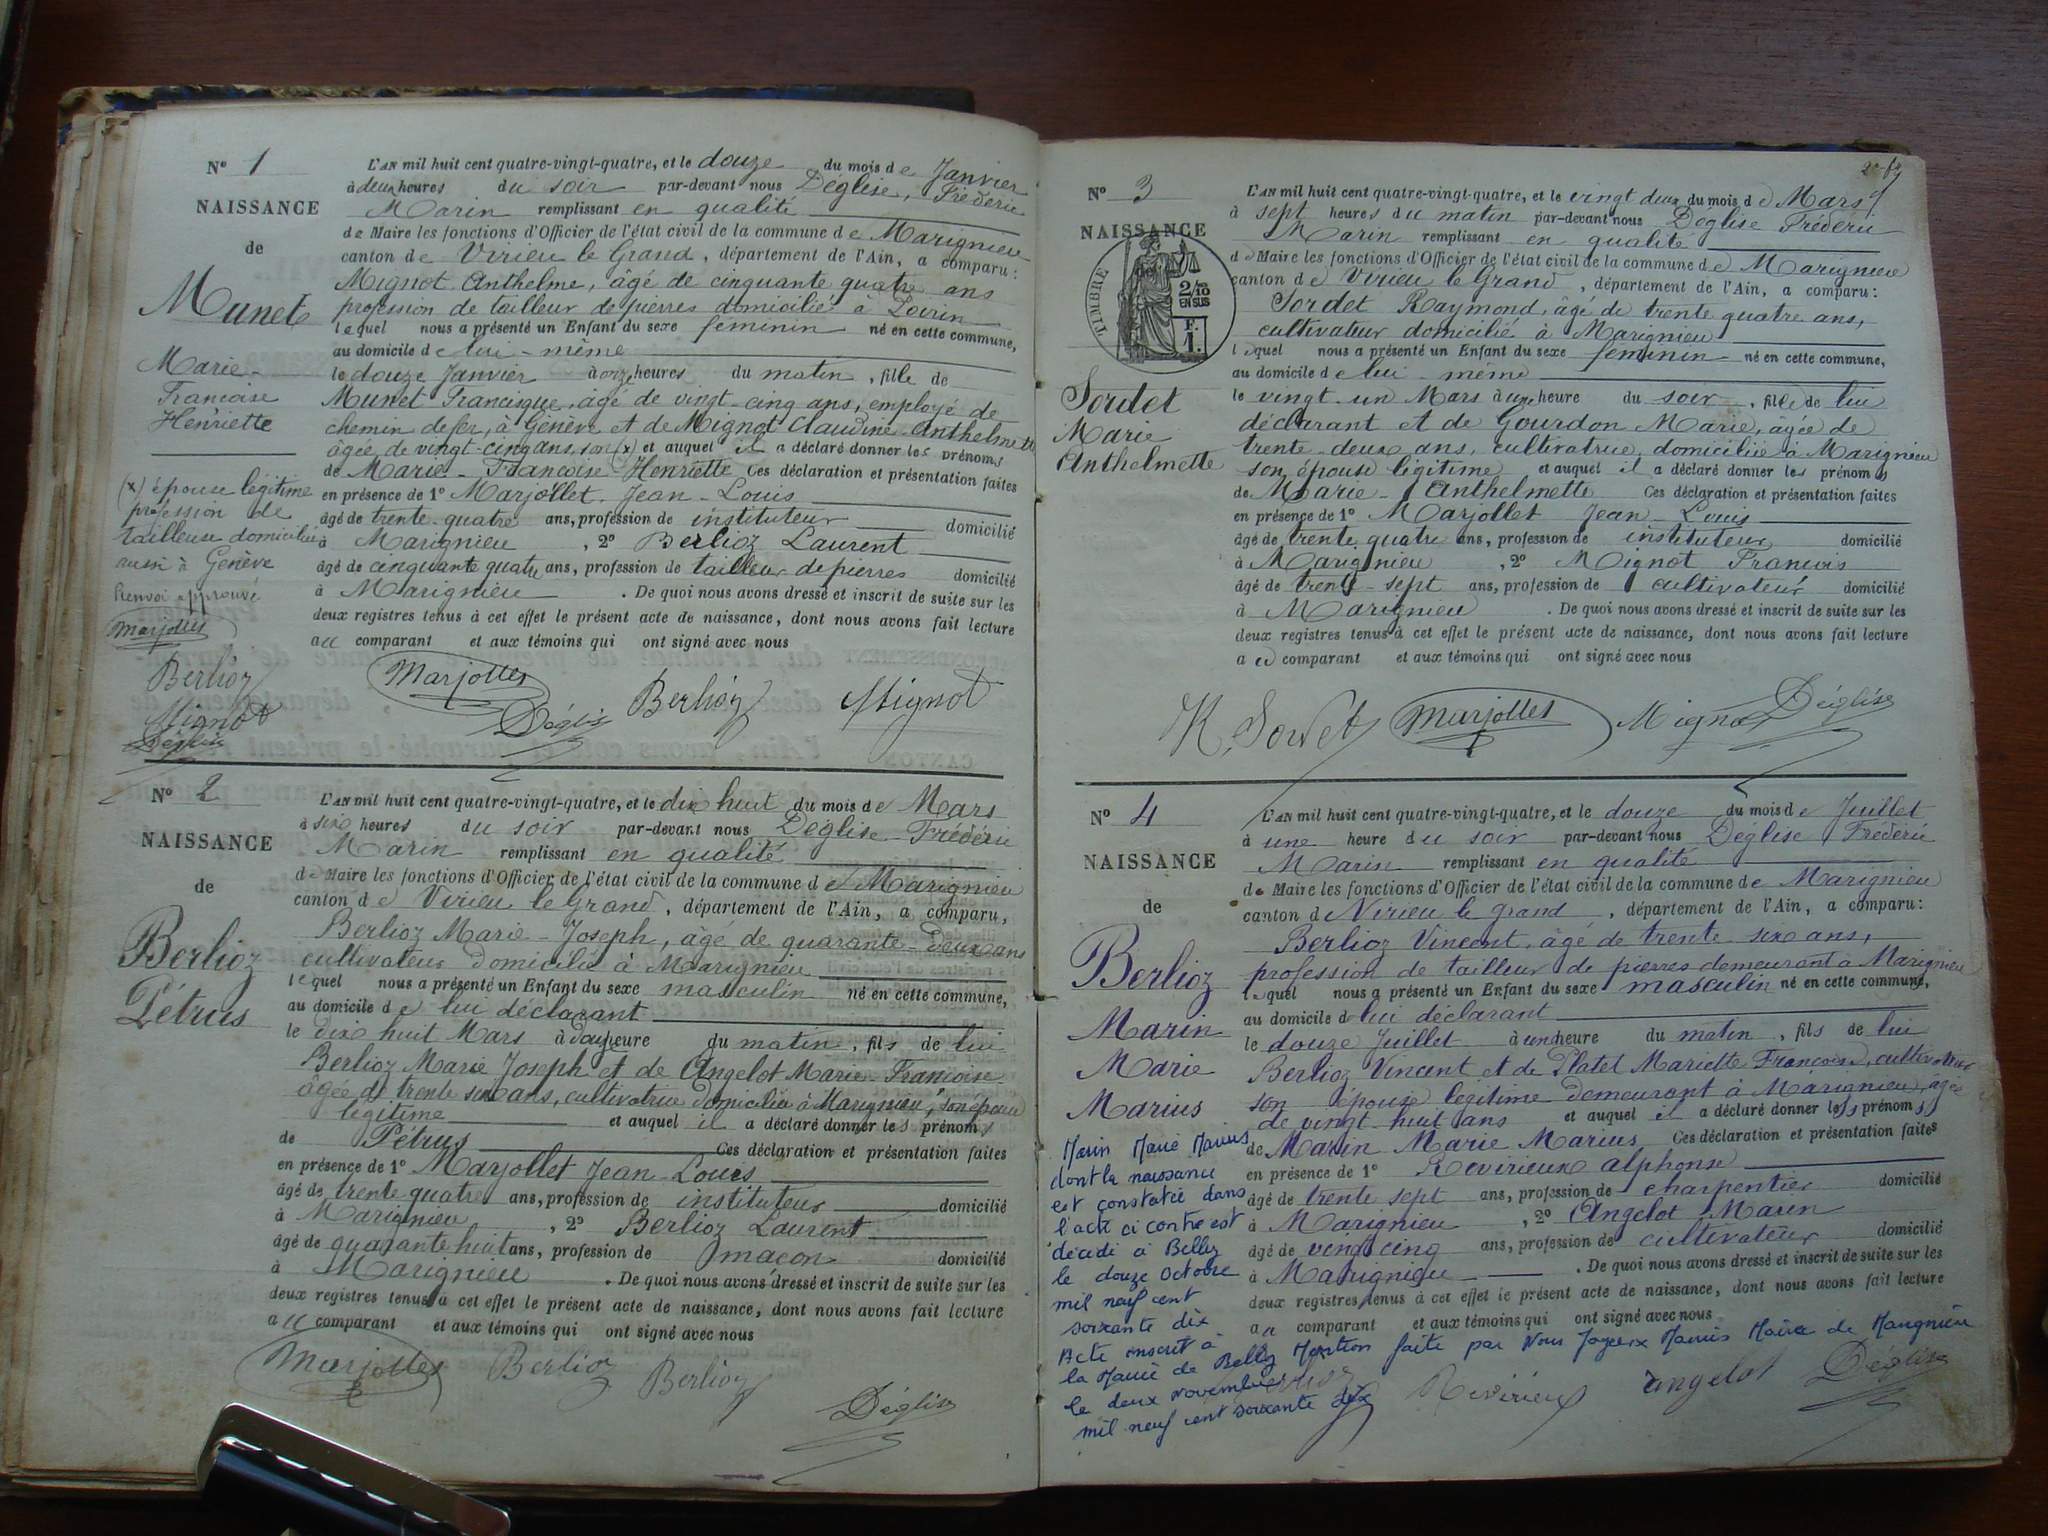 N° 1
NAISSANCE
de
Munet
Marie-
Françoise
Henriette
(x) épouse légitime
profession de
tailleuse domiciliée
aussi à Genève
Renvoi approuvé
Marjollet
Berlioz
Mignot
Déglise
L'AN mil huit cent quatre-vingt-quatre, et le douze du mois de Janvier
à deux heures du soir par-devant nous Déglise, Fréderic
Marin remplissant en qualité
de Maire les fonctions d'Officier de l'état civil de la commune de Marignieu
canton de Virieu le Grand, département de l'Ain, a comparu :
Mignot Anthelme, âgé de cinquante quatre ans
profession de tailleur de pierres domicilié à
lequel nous a présenté un Enfant du sexe féminin né en cette commune,
au domicile de lui-même
le douze Janvier à onze heures du matin, fille de
Munet Francisque, âgé de vingt-cinq ans, employé de
chemin de fer, à Genève et de Mignot Claudine Anthelmette
âgée de vingt-cinq ans, son (x) et auquel il a déclaré donner les prénoms
de Marie-Françoise-Henriette Ces déclaration et présentation faites
en présence de 1° Marjollet Jean-Louis
âgé de trente-quatre ans, profession de instituteur domicilié
à Marignieu, 2° Berlioz Laurent
âgé de cinquante quatre ans, profession de tailleur de pierres domicilié
à Marignieu. De quoi nous avons dressé et inscrit de suite sur les
deux registres tenus à cet effet le présent acte de naissance, dont nous avons fait lecture
au comparant et aux témoins qui ont signé avec nous
Marjollet Déglise Berlioz Mignot
N° 2
NAISSANCE
de
Berlioz
Pétrus
L'AN mil huit cent quatre-vingt-quatre, et le dix huit du mois de Mars
à six heures du soir par-devant nous Déglise Frédéric
Marin remplissant en qualité
de Maire les fonctions d'Officier de l'état civil de la commune de Marignieu
canton de Virieu le Grand, département de l'Ain, a comparu,
Berlioz Marie-Joseph, âgé de quarante-deux ans
cultivateur domicilié à Marignieu
lequel nous a présenté un Enfant du sexe masculin né en cette commune,
au domicile de lui déclarant
le dix huit Mars à heure du matin, fils de lui
Berlioz Marie Joseph et de Angelot Marie-Françoise
âgée de trente six ans, cultivatrice domiciliée à Marignieu, son épouse
légitime et auquel il a déclaré donner les prénoms
de Pétrus Ces déclaration et présentation faites
en présence de 1° Marjollet Jean-Louis
âgé de trente quatre ans, profession de instituteur domicilié
à Marignieu, 2° Berlioz Laurent
âgé de quarante huit ans, profession de maçon domicilié
à Marignieu. De quoi nous avons dressé et inscrit de suite sur les
deux registres tenus à cet effet le présent acte de naissance, dont nous avons fait lecture
au comparant et aux témoins qui ont signé avec nous
Marjollet Berlioz Berlioz Déglise
N° 3
NAISSANCE
de
TIMBRE
2/10
EN SUS
F.
1.
Sordet
Marie
Anthelmette
L'AN mil huit cent quatre-vingt-quatre, et le vingt deux du mois de Mars
à sept heures du matin par-devant nous Déglise Fréderic
Marin remplissant en qualité
de Maire les fonctions d'Officier de l'état civil de la commune de Marignieu
canton de Virieu le Grand, département de l'Ain, a comparu :
Sordet Raymond, âgé de trente quatre ans,
cultivateur domicilié à Marignieu
lequel nous a présenté un Enfant du sexe féminin né en cette commune,
au domicile de lui-même
le vingt-un Mars à une heure du soir, fille de lui
déclarant et de Gourdon Marie, âgée de
trente-deux ans, cultivatrice domiciliée à Marignieu
son épouse légitime et auquel il a déclaré donner les prénoms
de Marie-Anthelmette Ces déclaration et présentation faites
en présence de 1° Marjollet Jean-Louis
âgé de trente quatre ans, profession de instituteur domicilié
à Marignieu, 2° Mignot François
âgé de trente-sept ans, profession de cultivateur domicilié
à Marignieu. De quoi nous avons dressé et inscrit de suite sur les
deux registres tenus à cet effet le présent acte de naissance, dont nous avons fait lecture
comparant et aux témoins qui ont signé avec nous
R. Sordet Marjollet Mignot Déglise
N° 4
NAISSANCE
de
Berlioz
Marin
Marie
Marius
Marin Marie Marius
dont la naissance
est constatée dans
l'acte ci contre est
décédé à Belley
le douze Octobre
mil neuf cent
soixante dix
Acte inscrit à
la Mairie de Belley Mention faite par Nous Joyeux Marius Maire de Marignieu
le deux Novembre
mil neuf cent soixante dix
L'AN mil huit cent quatre-vingt-quatre, et le douze du mois de Juillet
à une heure du soir par-devant nous Déglise Fréderic
Marin remplissant en qualité
de Maire les fonctions d'Officier de l'état civil de la commune de Marignieu
canton de Virieu le grand, département de l'Ain, a comparu :
Berlioz Vincent, âgé de trente six ans,
profession de tailleur de pierres demeurant à Marignieu
lequel nous a présenté un Enfant du sexe masculin né en cette commune,
au domicile de lui déclarant
le douze Juillet à une heure du matin, fils de lui
Berlioz Vincent et de Platet Mariette Françoise, cultivatrice
son épouse légitime demeurant à Marignieu, âgée
de vingt-huit ans et auquel il a déclaré donner les prénoms
de Marin Marie Marius Ces déclaration et présentation faites
en présence de 1° Revirieux alphonse
âgé de trente sept ans, profession de charpentier domicilié
à Marignieu, 2° Angelot Marin
âgé de vingt cinq ans, profession de cultivateur domicilié
à Marignieu. De quoi nous avons dressé et inscrit de suite sur les
deux registres tenus à cet effet le présent acte de naissance, dont nous avons fait lecture
au comparant et aux témoins qui ont signé avec nous
Berlioz Revirieux angelot Déglise